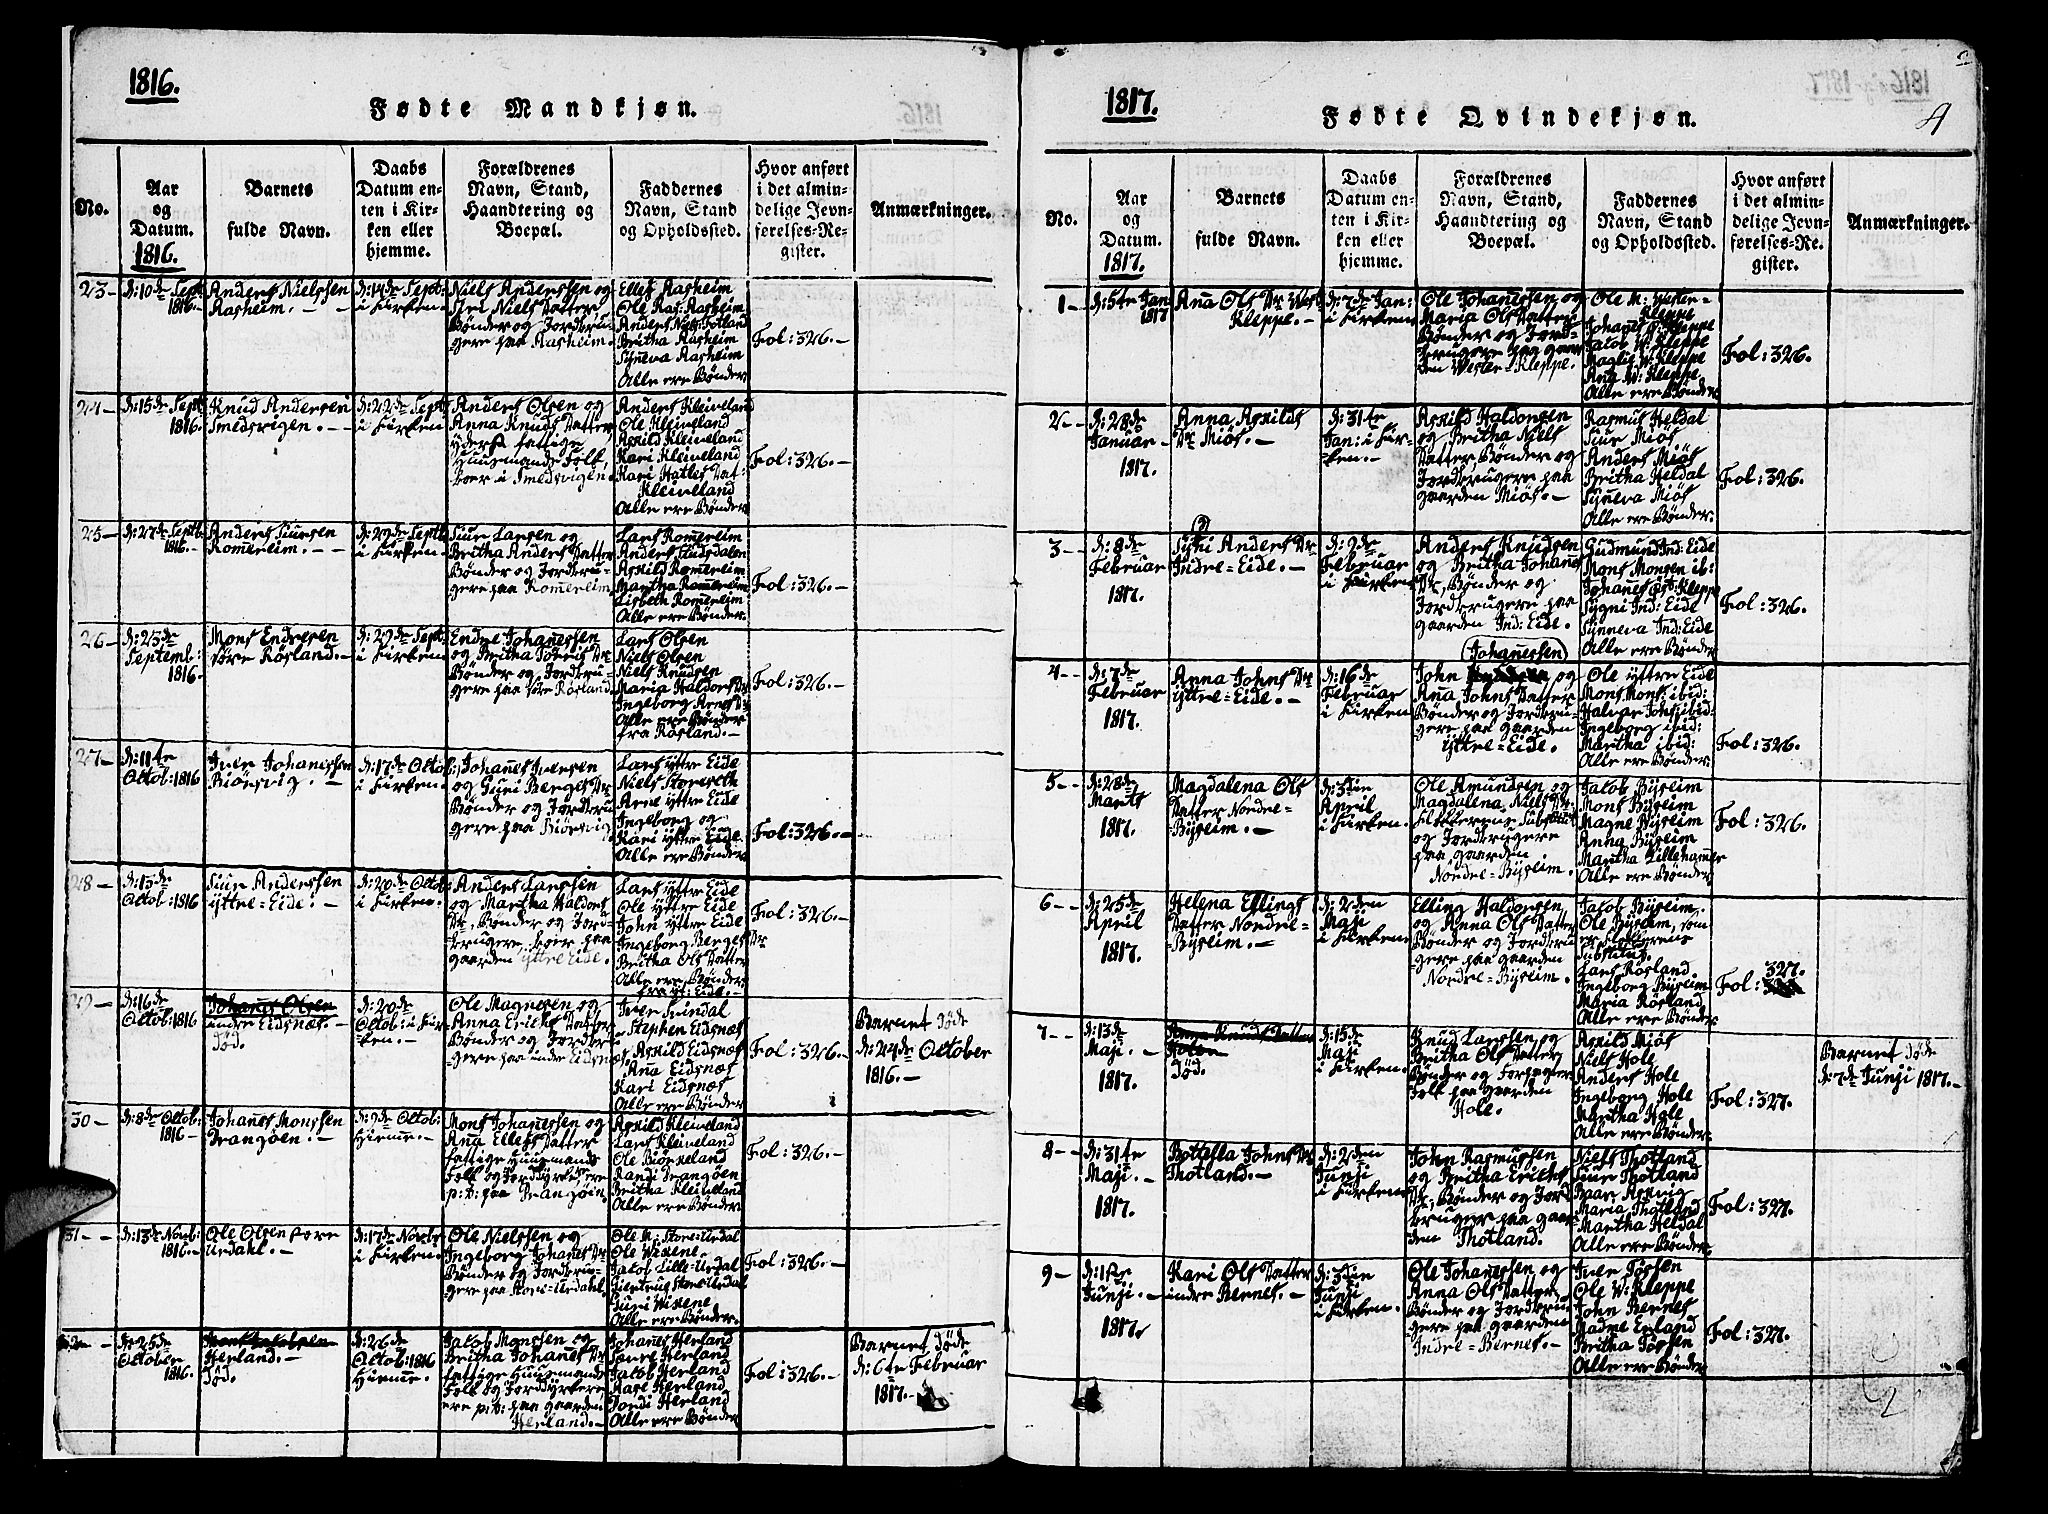 1816.
Fødte Mandkjøn.
No.
Aar
og
Datum.
1816.
Barnets
fulde Navn.
Daabs
Datum en-
ten i Kir-
ken eller
hjemme.
Forældrenes
Navn, Stand,
Haandtering og
Boepæl.
Faddernes
Navn, Stand
og Opholdssted.
Hvor anført
i det almin-
delige Jevn-
førelses-Re-
gister.
Anmærkninger.
23 -
d: 10de Sept
1816. -
Anders Nielssen
Aasheim. -
d: 14de Sept:
i Kirken.
Niels Anderssen og
Niels Datter
Bønder og Jordbru-
gere paa Aasheim.
Ellef Aasheim
Ole Ras: Aasheim
Anders Niels: Totland
Britha Aasheim
Synneva Aasheim
Alle ere Bønder
Fol: 326. -
24 -
d: 15de Sept
1816.
Knud Andersen
Smedsvigen. -
d: 22de Sept
i Kirken
Anders Olsen og
Anna Knuds Datter,
yderst fattige
Huusmands Folk,
boer i Smedsvigen.
Anders Kleiveland
Ole Kleiveland
Askild Kleiveland
Kari Kleiveland
Kari Hatles Dat-
Kleiveland
Alle ere Bønder
Fol: 326. -
25 -
d: 27de Septb:
1816. -
Anders Siursen
Romereim. -
d: 29de Sept
i Kirken. -
Siur Larsen og
Britha Anders Datter
Bønder og Jordbru-
gere paa Romereim.
Lars Romereim
Anders
Askild Romereim
Martha Romereim
Lisbeth Romereim
Alle ere Bønder.
Fol: 326. -
26 -
d: 23de
Septemb:
1816.
Mons Endresen
søre Røsland. -
d: 29de Sept:
i Kirken.
Endre Johanessen
og Britha Dr
Bønder og Jordbru-
gere paa søre Røsland
Lars Olsen
Niels Olsen
Niels Knudsen
Maria Haldors Dr
Ingeborg Arnes Dr
Alle ere Bønder
fra Røsland. -
Fol: 326. -
27 -
d: 11te
Octob: 1816
Iver Johanessen
Biørsvig. -
d: 17de Octob:
i Kirken.
Johanes Iversen
og Guri Berges Dr
Bønder og Jordbru-
gere paa Biørsvig.
Lars yttre Eide
Niels Storeseth
Arne yttre Eide
Ingeborg og
Kari yttre Eide.
Alle ere Bønder
Fol: 326. -
28 -
d: 13de
Octob: 1816
Siur Anderssen
yttre = Eide. -
d: 20de Octob:
i Kirken. -
Anders Larssen
og Martha Haldors
Dr, Bønder og Jord-
brugere, boer paa
gaarden yttre Eide.
Lars yttre Eide
Ole yttre Eide
John yttre Eide
Ingeborg Berges Dr
Britha Ols Datter
Alle ere Bønder
fra yt: Eide. -
Fol: 326. -
29 -
d: 16de
Octob: 1816
Johanes Olsen
indre Eidsnæs. -
Død.
d: 20de
Octob: i Kir-
ken. -
Ole Magnesen og
Anna Erichs Datter
Bønder og Jordbru-
gere paa indre Eidsnæs
Iver
Stephen Eidsnæs
Askild Eidsnæs
Ana Eidsnæs
Kari Eidsnæs
Alle ere Bønder
Fol: 326. -
Barnet Døde
d: 24de October
1816. -
30 -
d: 8de Octob:
1816 -
Johanes Monssen
Drangøen. -
d: 9de Octob:
Hiemme. -
Mons Johanessen og
Ana Ellefs Datter
fattige Huusmands
Folk og Jorddyrkere, ere
p: t: paa Drangøin.
Askild Kleiveland
Lars Kleiveland
Ole Biørkeland
Randi Drangøen
Britha Kleiveland
Alle ere Bønder
Fol: 326. -
31 -
d: 13de Novb:
1816. -
Ole Olsen store
Urdahl. -
d: 17de Novbr
i Kirken. -
Ole Nielssen og
Ingeborg Johanes Dr
Bønder og Jordbru-
gere paa Store = Urdahl.
Ole M: Store = Urdal
Ole Wixene.
Jacob Lille = Urdal
Giertrug Store Urdal
Guri Wixene
Alle ere Bønder.
Fol: 326. -
32 -
d: 25de
October
1816.
Mons Jacobsen
Herland. -
Død.
d: 26de
Octob: 1816
Hiemme.
Jacob Monssen og
Britha Johanes Dr
fattige Huusmands
Folk og Jorddyrkere
ere p: t: paa gaarden
Herland. -
Johanes Herland
Herland
Jacob Herland
Kari Herland
Herland
Alle ere Bønder
Fol: 326. -
Barnet Døde
d: 6te Februar
1817. -
1817.
Fødte Qvindekjøn.
4
No.
Aar
og
Datum.
1817.
Barnets
fulde Navn.
Daabs
Datum en-
ten i Kir-
ken eller
hjemme.
Forældrenes
Navn, Stand,
Haandtering og
Boepæl.
Faddernes
Navn, Stand
og Opholdssted.
Hvor anført
i det almin-
delige Jevn-
førelses-Re-
gister.
Anmærkninger.
1 -
d: 5te Jan
1817
Ana Ols Dr West
Kleppe. -
d: 7de Jan:
i Kirken.
Ole Johanessen og
Maria Ols Datter
Bønder og Jord-
brugere paa gaar-
den Wester = Kleppe.
Ole M: Wester =
Kleppe
Johanes W: Kleppe
Jacob W: Kleppe
Magli W: Kleppe
Ana W: Kleppe
Alle ere Bønder
Fol: 326.
2 -
d: 28de
Januar -
1817.
Anna Askilds
Dr Miøs. -
d: 31te
Jan: i Kir-
ken. -
Askild Haldorsen
og Britha Niels
Datter, Bønder og
Jordbrugere paa
gaarden Miøs. -
Rasmus Heldal
Siur Miøs
Anders Miøs
Britha Heldal
Synneva Miøs
Alle ere Bønder.
Fol: 326.
3 -
d: 8de
Februar
1817.
Sygni Anders Dr
Indre = Eide. -
d: 9de
Februar
i Kirken
Anders Knudsen
og Britha Johanes
Dr, Bønder og
Jordbrugere paa
gaarden Ind: Eide.
Gudmund Ind: Eide
Mons Monsen ib:
Johanes Øst: Kleppe
Sygni Ind: Eide
Synneva Ind: Eide
Alle ere Bønder
Fol: 326.
4 -
d: 7de
Februar
1817.
Anna Johns Dr
yttre = Eide. -
d: 16de
Februar
i Kirken
Johanessen
John og
Ana Johns Datter
Bønder og Jordbru-
gere paa gaarden
yttre = Eide.
Ole yttre Eide
Mons Mons: ibid:
Halvar Johs: ibid:
Ingeborg ibid:
Martha ibid:
Alle ere Bønder
Fol: 326.
5 -
d: 28de
Marts
1817.
Magdalena Ols
Datter Nordre =
Byseim. -
d: 3die
April
i Kirken.
Ole Amundsen og
Magdalena Niels Dr
Klokkerens Substitut
og Jordbrugere
paa gaarden
Nordre = Byseim.
Jacob Byseim
Mons Byseim
Magne Byseim
Anna Byseim
Martha Lillehamer
Alle ere Bønder
Fol: 326.
6 -
d: 25de
April
1817.
Helena Ellings
Datter Nordre =
Byseim. -
d: 2den
Maji
i Kirken
Elling Haldorsen
og Anna Ols Datter
Bønder og Jordbru-
gere paa gaarden
Nordre = Byseim.
Jacob Byseim.
Ole Byseim, som
er Klokkerens
Substitut.
Lars Røsland
Ingeborg Byseim
Maria Røsland
Alle ere Bønder
327.
Fol:
7 -
d: 13de
Maji. -
1817.
Knuds Datter
Holen
Død.
d: 15de
Maji
i Kirken.
Knud Larssen og
Britha Ols Datter
Bønder og
Folk paa gaarden
Hole.
Askild Miøs
Niels Hole
Anders Hole
Ingeborg Hole
Martha Hole
Alle ere Bønder.
Fol: 327.
Barnet Døde
d: 7de Junji 1817. -
8 -
d: 31te
Maji.
1817.
Bottella Johns Dr
Thotland. -
d: 2den
Junji
i Kirken
John Rasmussen
og Britha Erichs
Dr, Bønder og Jord
bruger paa gaar
den Thotland.
Niels Thotland
Siur Thotland
Baar Askvig
Maria Thotland og
Martha Heldal
Alle ere Bønder
Fol: 327.
9 -
d: 1ste
Junji. -
1817.
Kari Ols Datter
indre Bernes. -
d: 3die
Junji
i Kirken.
Ole Johanessen og
Anna Ols Datter
Bønder og Jordbru
gere paa gaarden
Indre = Bernes. -
Iver Tøssen
Ole W: Kleppe
John Bernes
Madme Erland
Britha Tøssen
Alle ere Bønder
Fol: 327.